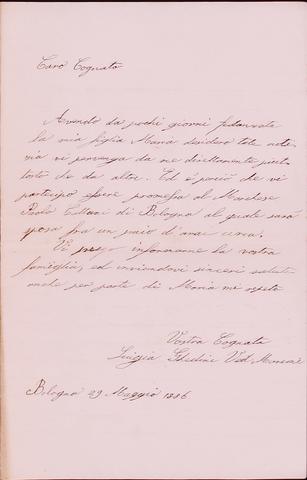 Caro Cognato
Avendo da pochi giorni fidanzata
la mia figlia Maria desidero tale noti-
zia vi pervenga da me direttamente piut-
tosto che da altri. Ed è perciò che vi
partecipo essere promessa al Marchese
Paolo di Bologna al quale sarà
sposa fra un anno circa.
Vi prego informarne la vostra
famiglia, ed inviandovi sinceri saluti
anche per parte di Maria mi ripeto
Vostra Cognata
Bologna 29 Maggio 1886